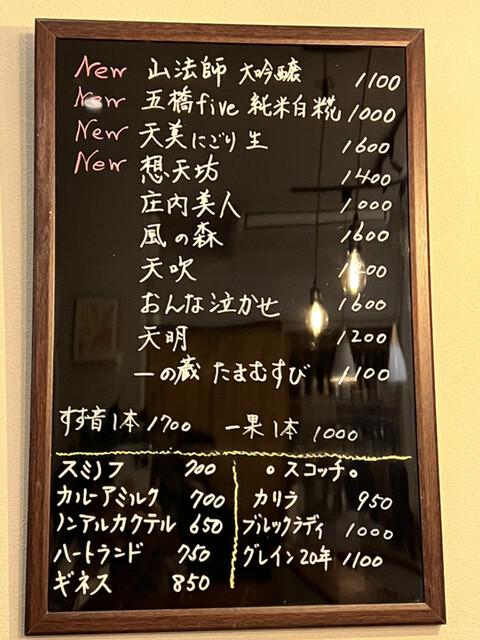 New 山法師 大吟醸 1100
New 五橋five 純米白糀 1000
New 天美にごり生 1600
New 想天坊 1400
庄内美人 1000
風の森 1600
天吹
おんな泣かせ 1600
天明 1200
一の蔵 たまむすび 1100
すず音1本 1700 一果1本 1000
スミノフ 700
カルーアミルク 700
ノンアルカクテル 650
ハートランド 750
ギネス 850
。スコッチ。
カリラ 950
ブルックラディ 1000
グレイン20年 1100